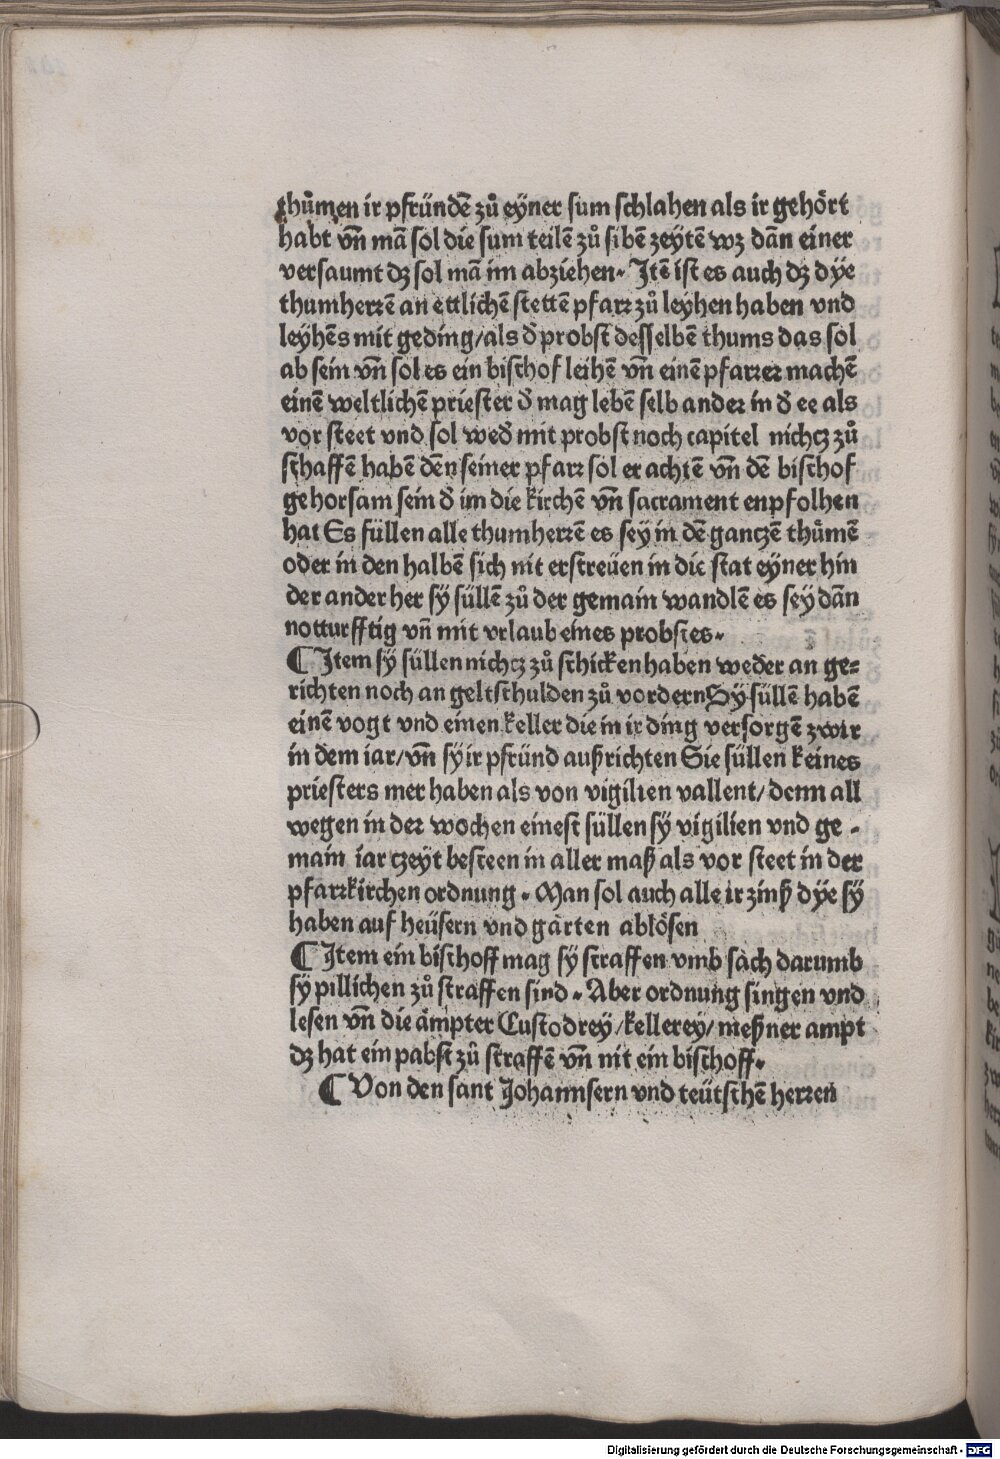 thůmen ir pfründē zů eÿner sum schlahen als ir gehört
habt vn̄ mā sol die sum teilē zů sibē zeytē wz dān einer
versaumt dz sol mā im abziehen. Jtē ist es auch dz dÿe
thumherrē an ettlichē stettē pfarr zů leyhen haben vnd
leyhēs mit geding/als d̄ probst desselbē thums das sol
ab sein vn̄ sol es ein bischof leihē vn̄ einē pfarrer machē
einē weltlichē priester d̄ mag lebē selb ander in d̄ ee als
vor steet vnd sol wed̄ mit probst noch capitel nichtz zů
schaffē habē dēn seiner pfarr sol er achtē vn̄ dē bischof
gehorsam sein d̄ im die kirchē vn̄ sacrament enpfolhen
hat Es süllen alle thumherrē es seÿ in dē gantzē thůmē
oder in den halbē sich nit erstreüen in die stat eÿner hin
der ander her sÿ süllē zů der gemain wandlē es seÿ dān
notturfftig vn̄ mit vrlaub eines probstes.
¶ Jtem sÿ süllen nichtz zů schicken haben weder an ge=
richten noch an geltschulden zů vordern Sÿ süllē haben̄
einē vogt vnd einen keller die in ir ding versorgē zwir
in dem iar/vn̄ sÿ ir pfründ außrichten Sie süllen keines
priesters mer haben als von vigilien vallent/denn all
wegen in der wochen einest süllen sÿ vigilien vnd ge-
main iar tzeyt besteen in aller maß als vor steet in der
pfarrkirchen ordnung. Man sol auch alle ir zinß dÿe sÿ
haben auf heüsern vnd gärten ablösen
¶ Jtem ein bischoff mag sÿ straffen vmb sach darumb
sÿ pillichen zů straffen sind. Aber ordnung singen vnd
lesen vn̄ die ämpter Custodrey/kellerey/meßner ampt
dz hat ein pabst zů straffē vn̄ nit ein bischoff.
¶ Von den sant Johannsern vnd teütschē herren
Digitalisierung gefördert durch die Deutsche Forschungsgemeinschaft - DFG